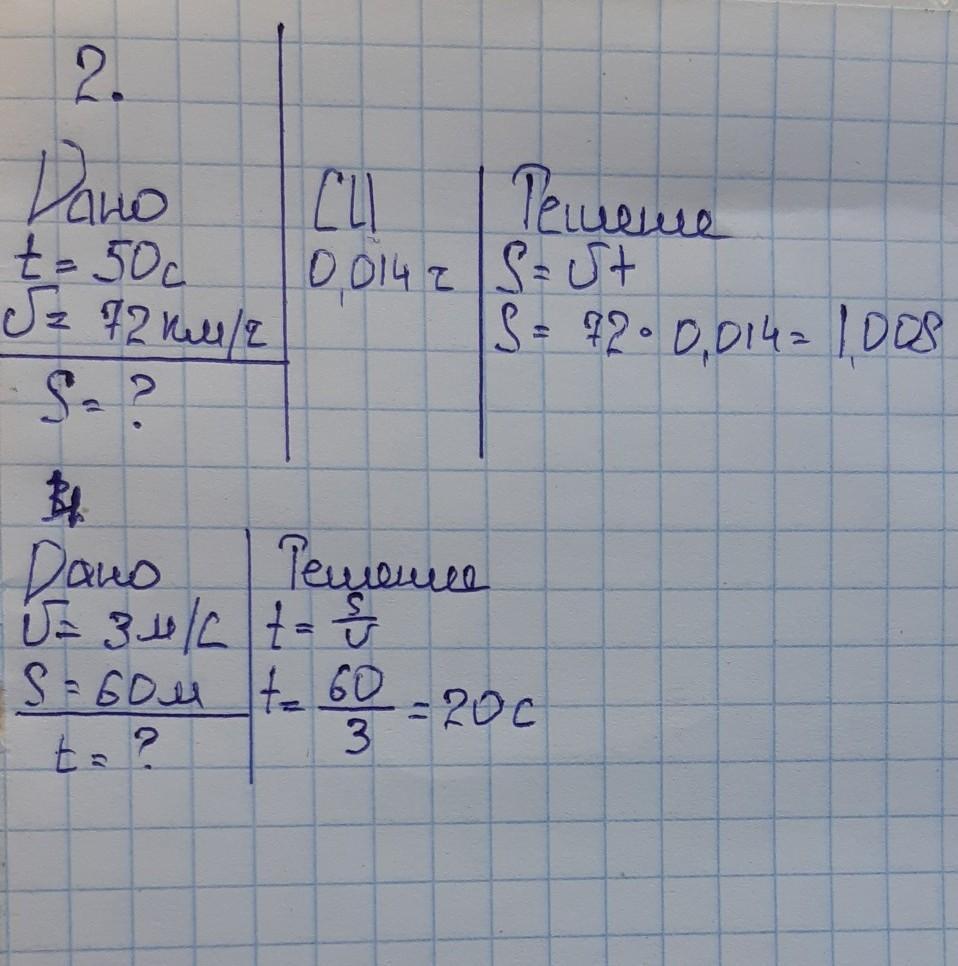 2.
Дано
t = 50с
υ = 72 км/ч
S = ?
СИ
0,014 ч
Решение
S = υt
S = 72 · 0,014 = 1,008
Дано
υ = 3 м/с
S = 60 м
t = ?
Решение
t = S/υ
t = 60/3 = 20 с